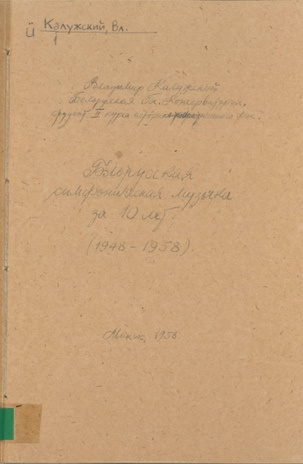 Й Калужский, Вл.
Владимир Калужский
Белорусская Гос. Консерватория
студент II курса историко-теоретического фак.
Белорусская
симфоническая музыка
за 10 лет.
(1948 - 1958).
Минск, 1958.